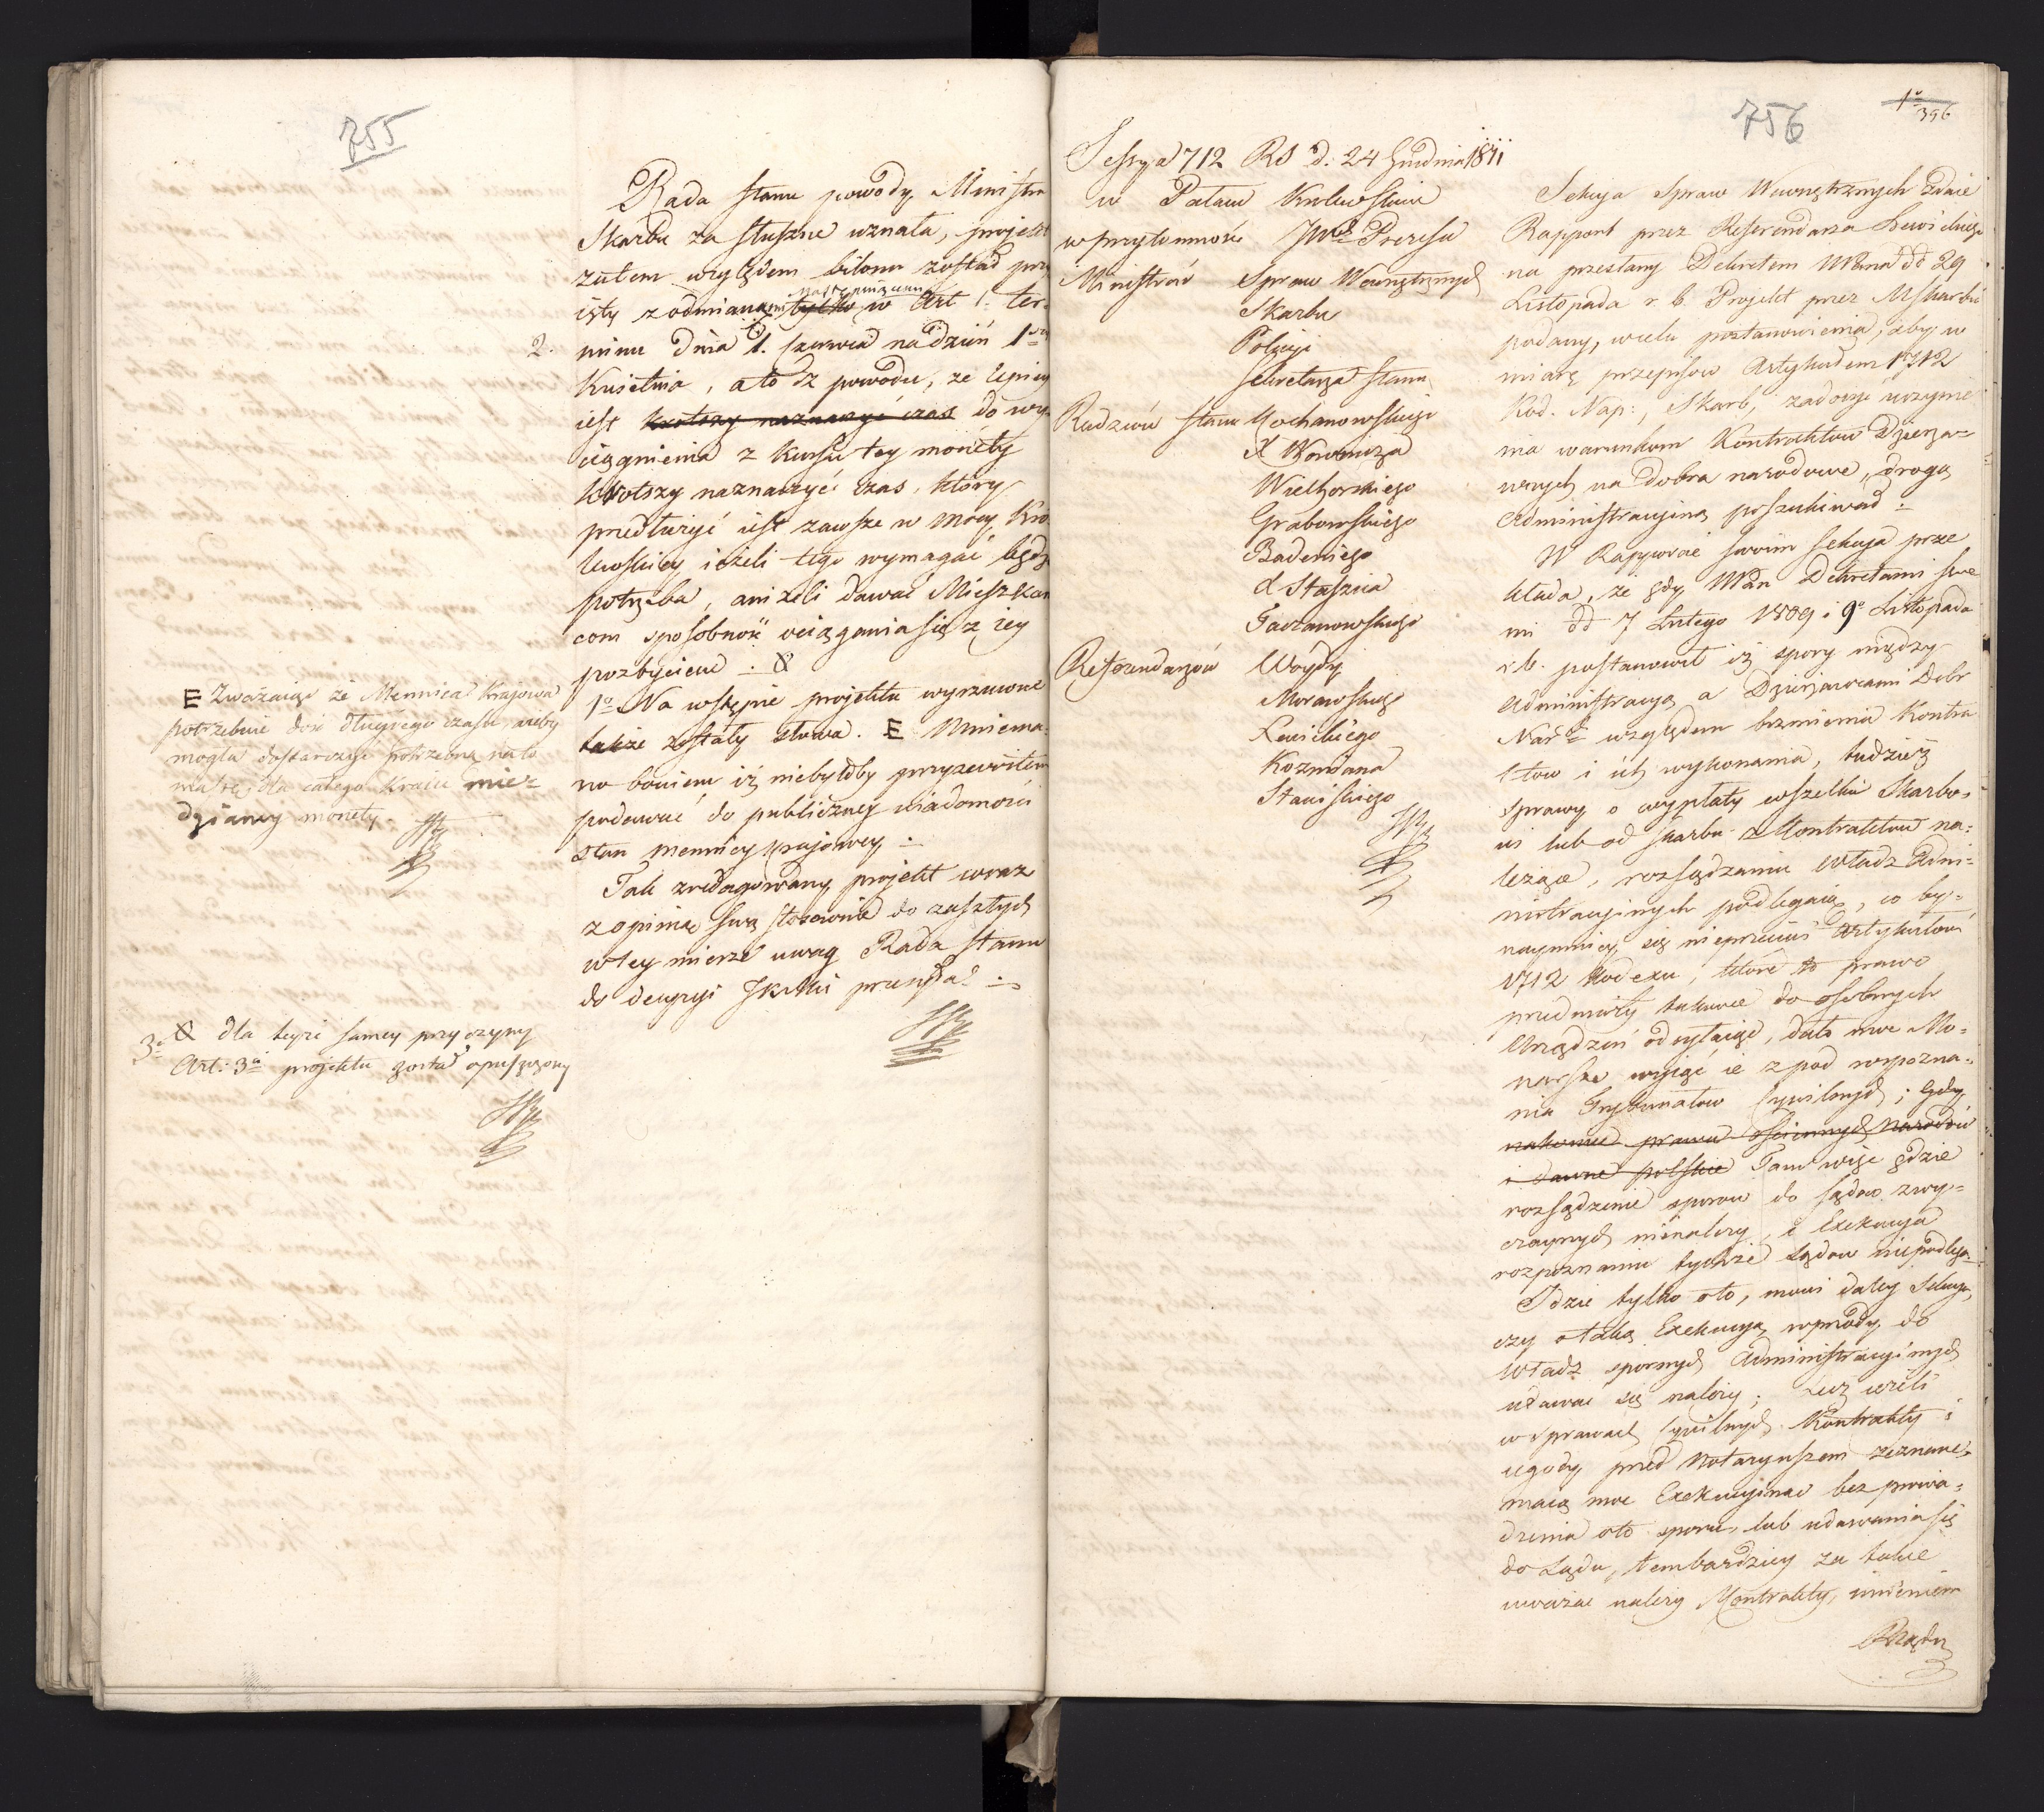 755
Rada Stanu powody Ministra
Skarbu za słuszne uznała, projekt
zatem względem bilonu został przy
ięty z odmianami następuiącemi tylko w Art 1. ter-
2. minu dnia 1. Czerwca na dzień 1go
Kwietnia, a to z powodu, że lepiey
iest krotszy naznaczyć czas do wy-
ciągnienia z kursu tey monety
krotszy naznaczyć czas, który
przedłużyć iest zawsze w mocy Kro-
lewskiey ieżeli tego wymagać będzie
potrzeba, aniżeli dawać Mieszkań
com sposobność ociągania się z iey
pozbyciem.
1o Na wstępie projektu wyrzucone
także zostały słowa. E Mniema-
no bowiem iż niebyłoby przyzwoitem
podawać do publiczney wiadomości
stan mennicy krajowey.
Tak zredagowany projekt wraz
z opinią swą stosownie do zaszłych
w tey mierze uwag Rada Stanu
do decyzyi JKMci przesyła.
E Zważaiąc że Mennica Krajowa
potrzebuie dość długiego czasu, nieby
mogła dostarczyć potrzebną na to
dla całego Kraiu mie-
dzianey monety.
3o dla teyże samey przyczyny
Art: 3a projektu został opuszczony
756
396
Sessya 712 RS d: 24 Grudnia 1811
w Pałacu Krolewskim
w przytomności JWo Prezesa
Ministrów Spraw Wewnętrznych
Skarbu
Policyi
Sekretarza Stanu
Radzców Stanu Kochanowskiego
X Woronicza
Wielhorskiego
Grabowskiego
Badeniego
X Staszica
Tarnowskiego
Referendarzów Woydy
Morawskiego
Lewickiego
Kozmiana
Staniskiego
Sekcya Spraw Wewnętrznych zdaie
Rapport przez Referendarza Lewickiego
na przesłany Dekretem WPana dd 29
Listopada r. b. Projekt przez MSkarbu
podany, wielu postanowienia, aby w
miarę przepisow Artykułem 1712
Kod. Nap:, Skarb, zadosyć uczynie
nia warunkom Kontraktow Dzierza-
wnych na Dobra narodowe, drogą
administracyiną poszukiwał.
W Rapporcie swoim Sekcya prze
kłada, że gdy WPan Dekretami swe
mi dd 7 Lutego 1809 i 9o Listopada
r. b. postanowił iż spory między
Administracyą a Dzierżawcami Dobr
Narch względem brzmienia Kontra
ktow i ich wykonania, tudzież
sprawy o wypłaty wszelkie Skarbo-
wi lub od Skarbu z Kontraktow na-
leżące, rozsądzaniu władz Admi-
nistracyinych podlegaią, co by-
naymniey się nieprzeciwi Artykułowi
1712 Kodexu, które to prawo
przedmioty takowe do osobnych
Urządzeń odsyłaiąc, dało moc Mo-
narsze wyiąć ie z pod rozpozna-
nia Trybunałow Cywilnych; Gdy
nakoniec prawa ościennych Narodów
i dawne polskie Tam więc gdzie
rozsądzenie sporow do sądow zwy-
czaynych nienależy, i Exekucya
rozpoznaniu tychże Sądow niepodlega.
Idzie tylko o to, mówi daley Sekcya,
czy o taką Exekucyą wprzódy do
Władz spornych Administracyinych
udawać się należy; lecz ieżeli
w sprawach Cywilnych Kontrakty i
ugody przed Notaryuszem zeznane
maią moc Exekucyiną bez prowa-
dzenia o to sporu, lub udawania się
do Sądu, tembardziey za takie
uważać należy Kontrakty, imieniem
Rządu